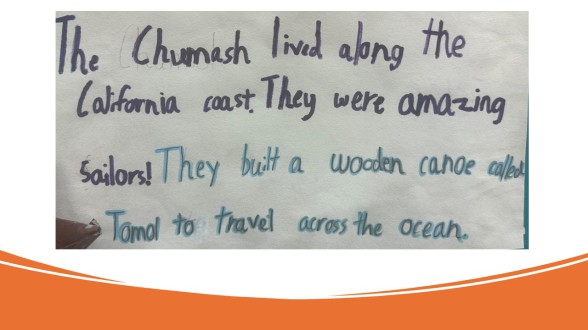 The Chumash lived along the
California coast. They were amazing
Sailors! They built a wooden canoe called
Tomol to travel across the ocean.